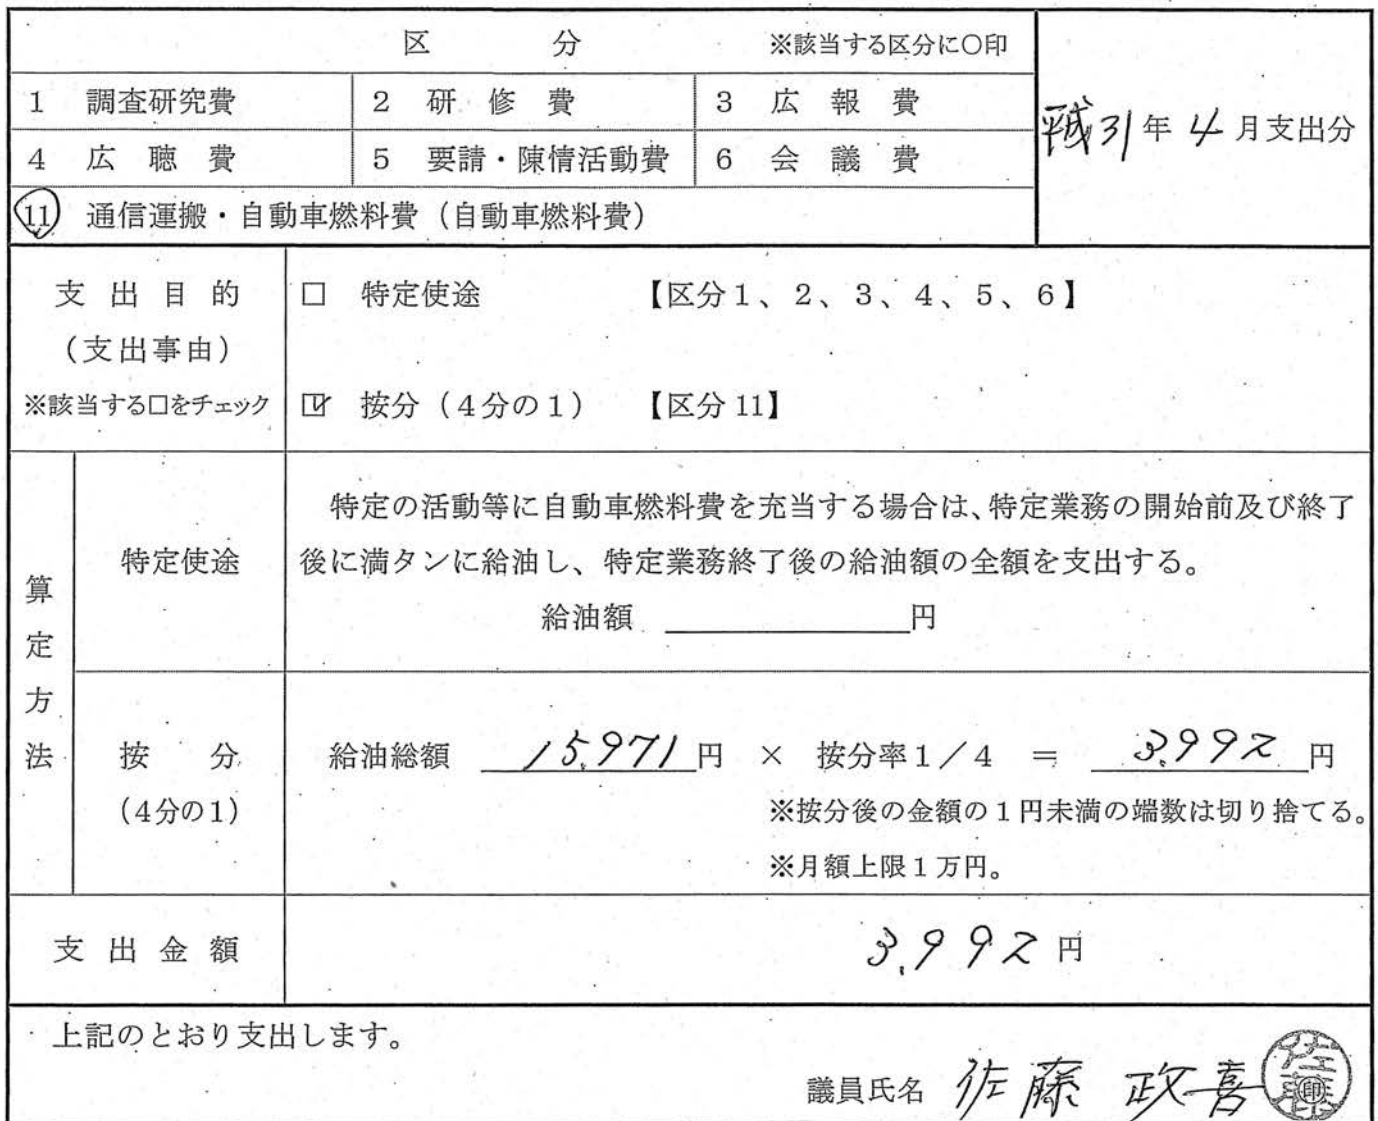 区　　　分　　　※該当する区分に〇印
平成31年4月支出分
1　調査研究費　2　研　修　費　3　広　報　費
4　広　聴　費　5　要請・陳情活動費　6　会　議　費
11　通信運搬・自動車燃料費（自動車燃料費）
支 出 目 的
（支出事由）
※該当する口をチェック
□　特定使途　【区分１、２、３、４、５、６】
☑　按分（４分の１）　【区分 11】
算定方法
特定使途
特定の活動等に自動車燃料費を充当する場合は、特定業務の開始前及び終了
後に満タンに給油し、特定業務終了後の給油額の全額を支出する。
給油額　　　　　円
按　　分
（4分の1）
給油総額　15,971円　×　按分率１／４　＝　3,992円
※按分後の金額の１円未満の端数は切り捨てる。
※月額上限１万円。
支 出 金 額　3,992円
上記のとおり支出します。
議員氏名　佐藤　政喜
佐藤
印